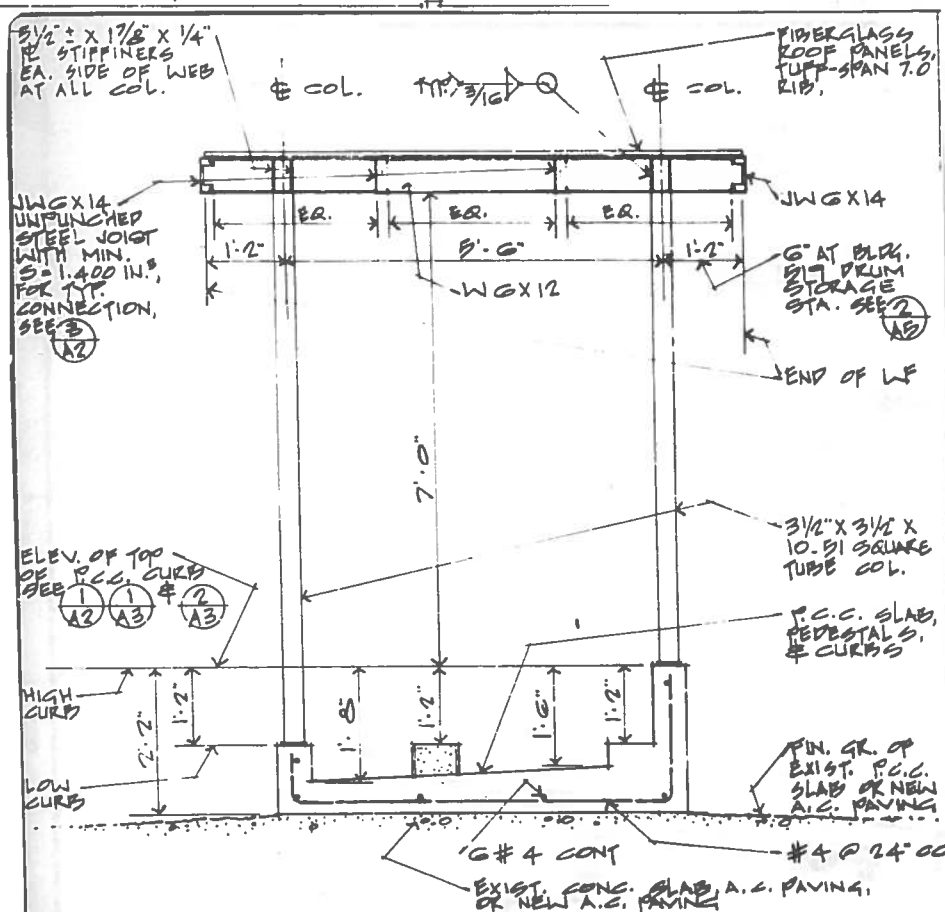 5 1/2" ± X 1 7/8" X 1/4"
PL STIFFINERS
EA. SIDE OF WEB
AT ALL COL.
℄ COL.
TYP. 3/16
℄ COL.
FIBERGLASS
ROOF PANELS,
TUFF-SPAN 7.0
RIB,
JW 6X14
UNPUNCHED
STEEL JOIST
WITH MIN.
S=1.400 IN.³,
FOR TYP.
CONNECTION,
SEE 3
A2
EQ.
EQ.
EQ.
1'-2"
5'-6"
1'-2"
W 6X12
JW 6X14
6" AT BLDG.
519 DRUM
STORAGE
STA. SEE 2
A5
END OF WF
7'-0"
3 1/2" X 3 1/2" X
10.51 SQUARE
TUBE COL.
ELEV. OF TOP
OF P.C.C. CURB
SEE 1 1 & 2
A2 A3 A3
P.C.C. SLAB,
PEDESTALS,
& CURBS
HIGH
CURB
2'-2"
1'-2"
1'-8"
1'-2"
1'-6"
1'-2"
LOW
CURB
FIN. GR. OF
EXIST. P.C.C.
SLAB OR NEW
A.C. PAVING
6 # 4 CONT
# 4 @ 24" OC
EXIST. CONC. SLAB, A.C. PAVING,
OR NEW A.C. PAVING